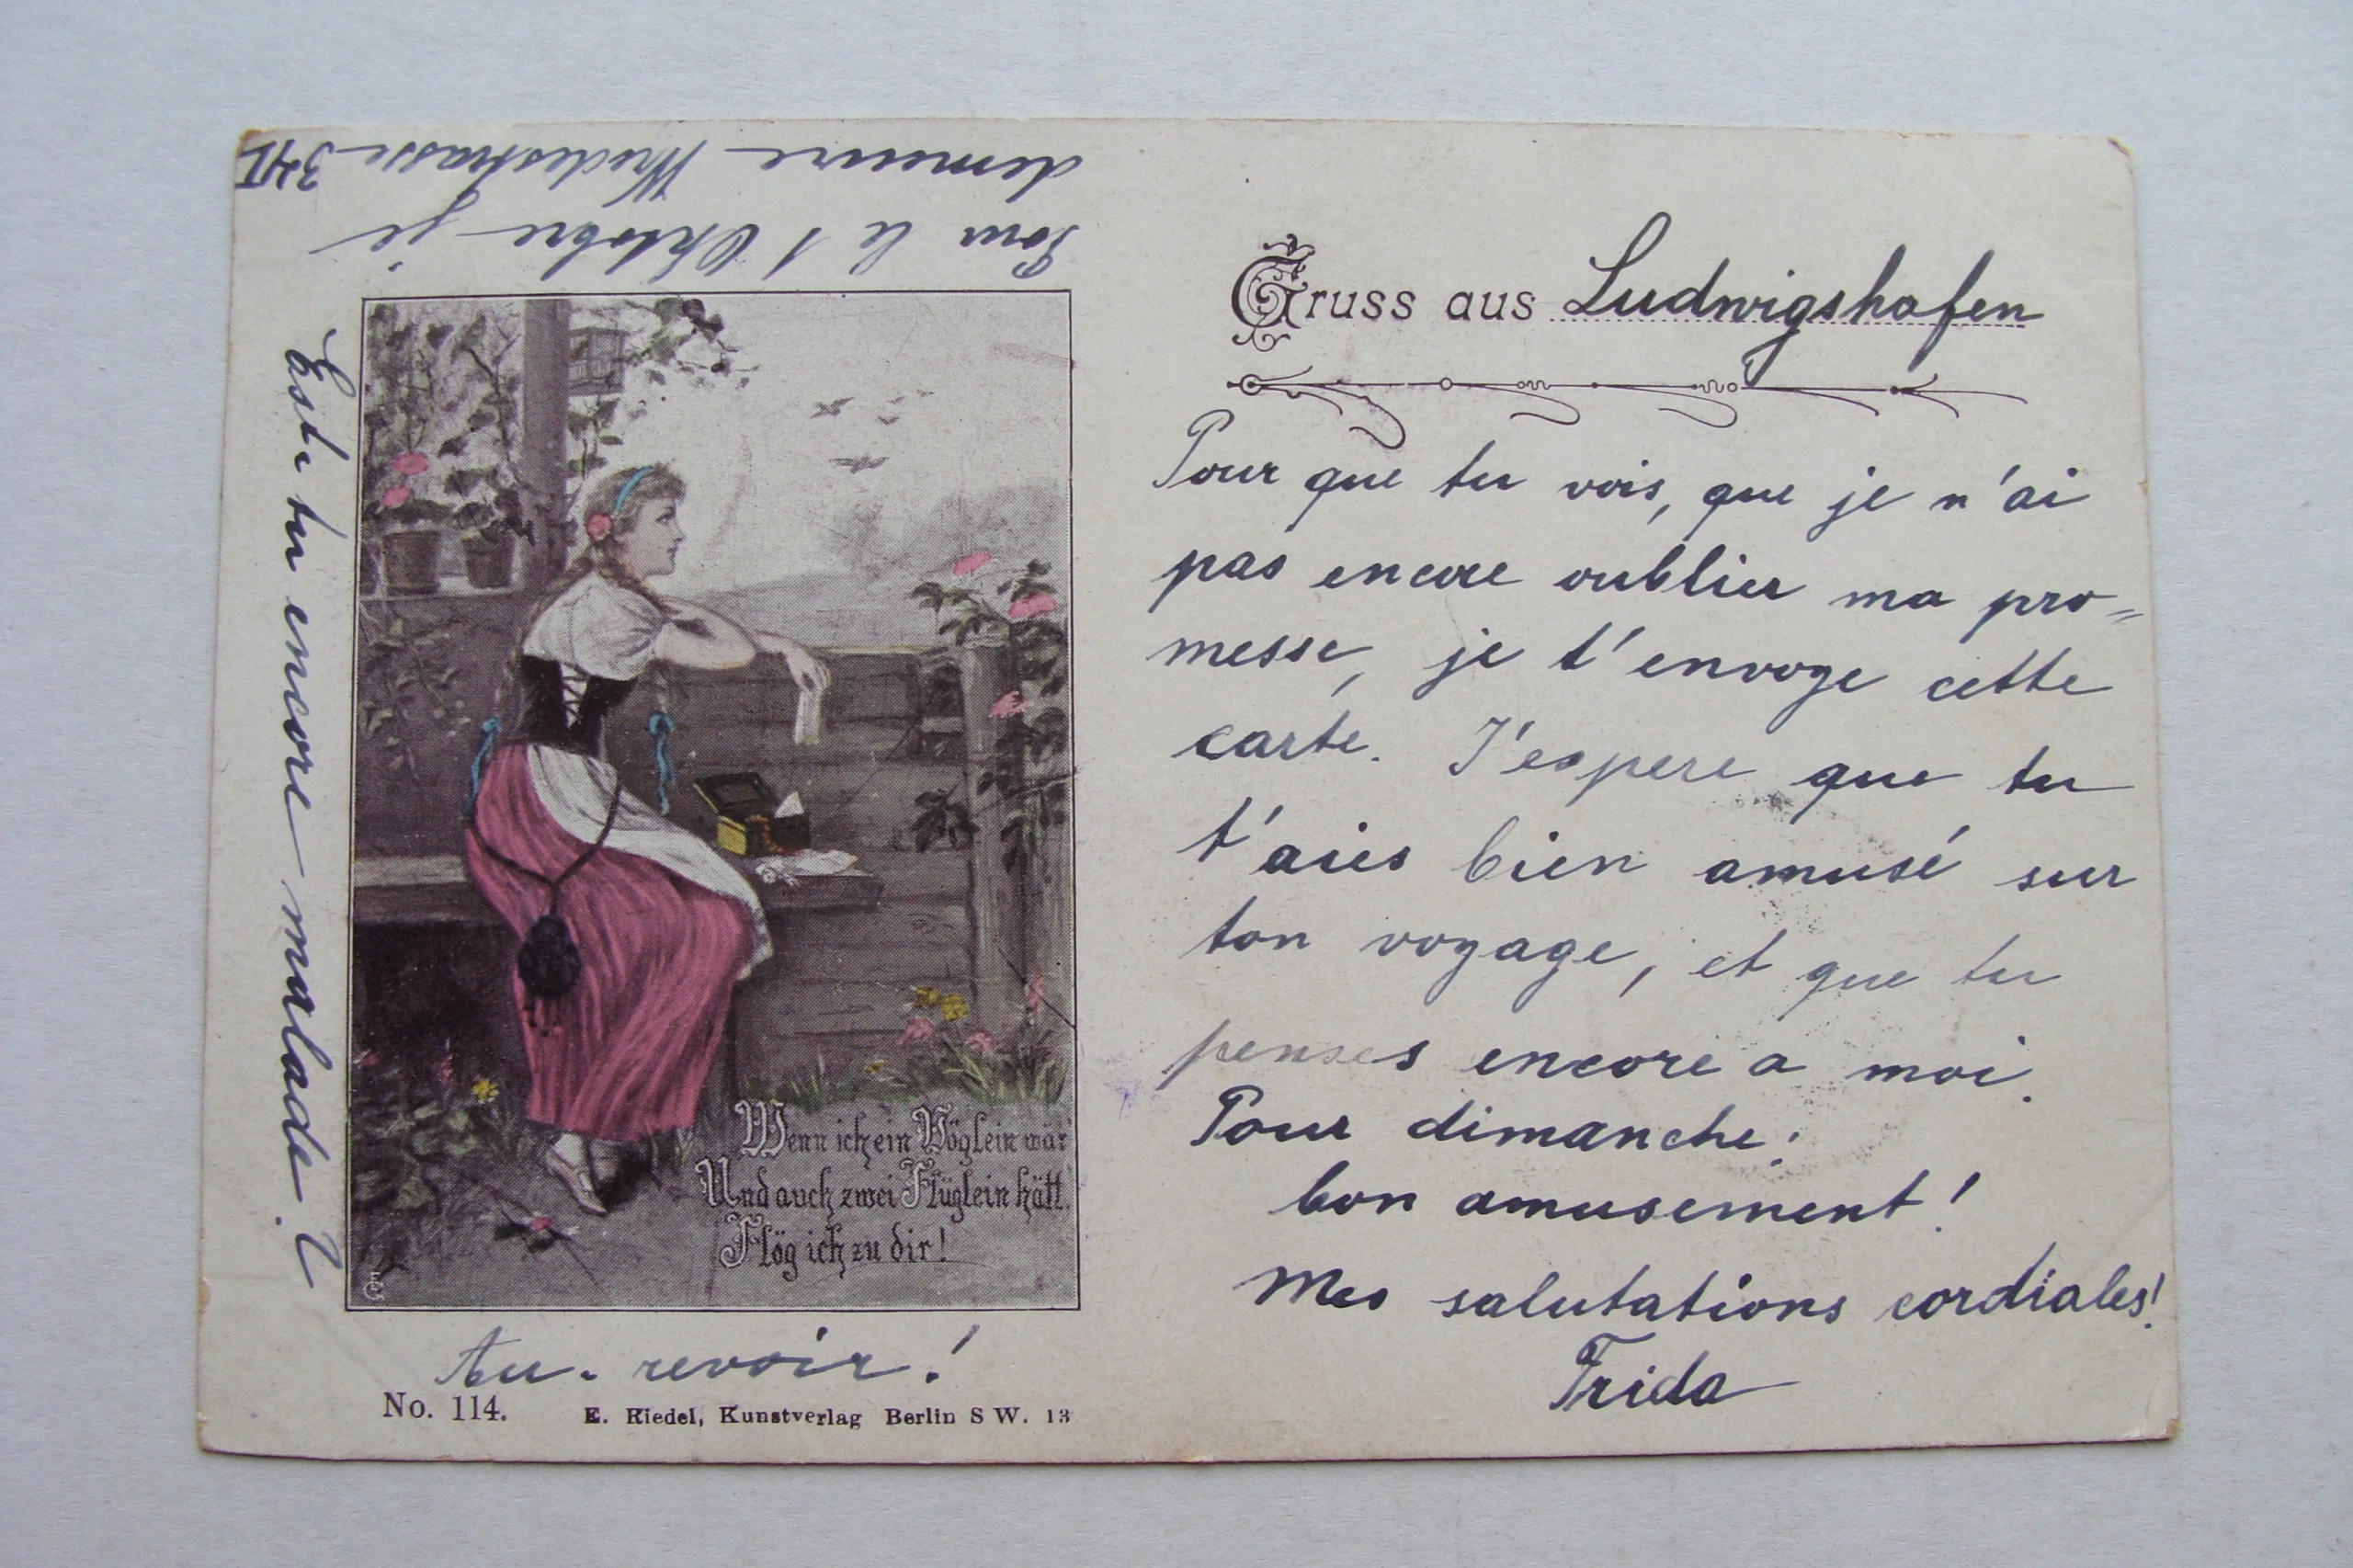 Gruss aus Ludwigshafen
Pour que tu vois, que je n'ai
pas encore oublier ma pro=
messe, je t'envoye cette
carte. J'espere que tu
t'aies bien amusé sur
ton voyage, et que tu
penses encore a moi.
Pour dimanche:
bon amusement!
Mes salutations cordiales!
Frida
Pour le 1 Oktobre je
demeure Wredestrasse
Est-tu encore malade.?
Wenn ich ein Vöglein wär'
Und auch zwei Flüglein hätt'
Flög ich zu dir!
Au-revoir!
No. 114.
E. Riedel, Kunstverlag Berlin S W. 13